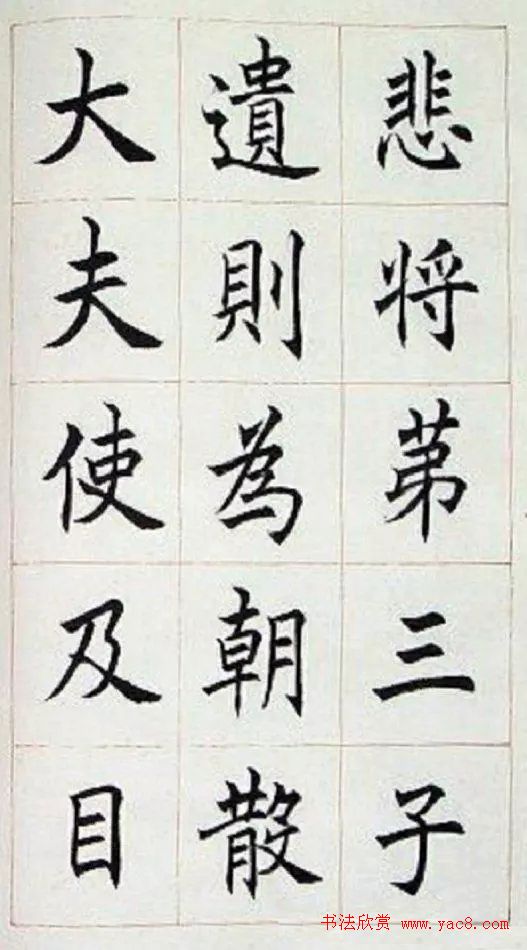 悲将苐三子
遺則為朝散
大夫使及目
书法欣赏 www.yac8.com